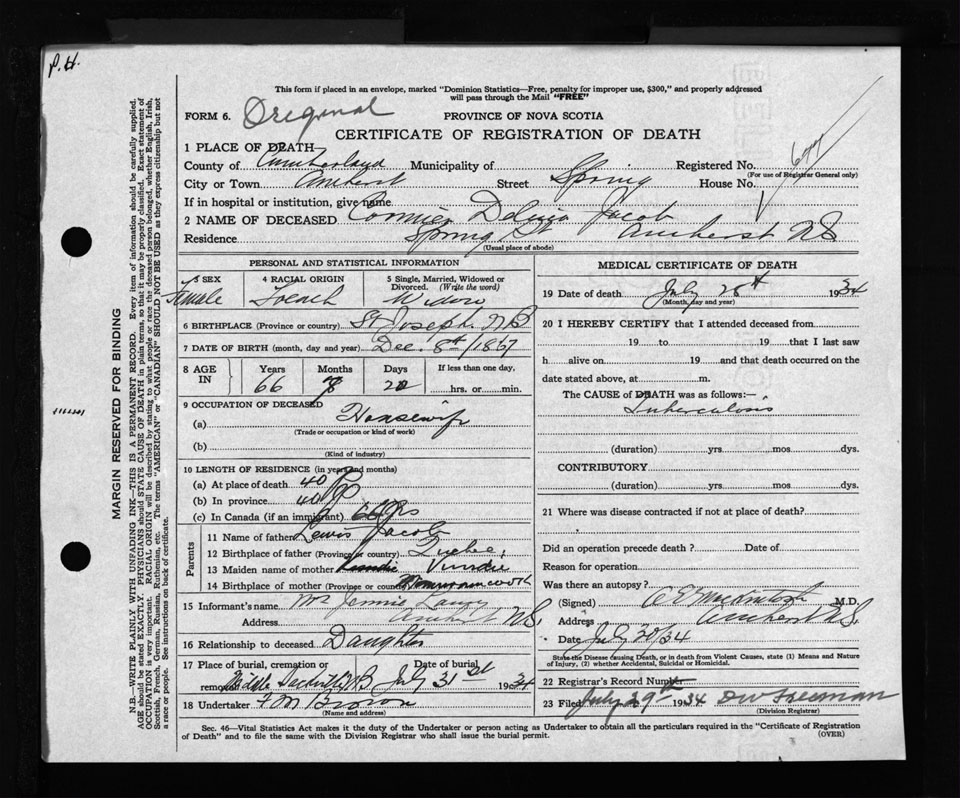 P.H.
This form if placed in an envelope, marked "Dominion Statistics—Free, penalty for improper use, $300," and properly addressed
will pass through the Mail "FREE"
FORM 6. Original PROVINCE OF NOVA SCOTIA
CERTIFICATE OF REGISTRATION OF DEATH
1 PLACE OF DEATH—
County of Cumberland Municipality of Registered No. 677
(For use of Registrar General only)
City or Town Amherst Street Spring House No.
If in hospital or institution, give name
2 NAME OF DECEASED Cormier Jacob
Residence Spring St Amherst NS
(Usual place of abode)
PERSONAL AND STATISTICAL INFORMATION
3 SEX 4 RACIAL ORIGIN 5 Single, Married, Widowed or Divorced. (Write the word)
Female French Widow
6 BIRTHPLACE (Province or country) St Joseph. N B
7 DATE OF BIRTH (month, day and year) Dec. 8th/1867
8 AGE IN Years Months Days If less than one day,
66 hrs. or min.
9 OCCUPATION OF DECEASED
(a) Housewife
(Trade or occupation or kind of work)
(b)
(Kind of industry)
10 LENGTH OF RESIDENCE (in years and months)
(a) At place of death 40
(b) In province 40
(c) In Canada (if an immigrant) 66 yrs
Parents
11 Name of father Lewis Jacob
12 Birthplace of father (Province or country) Quebec
13 Maiden name of mother
14 Birthplace of mother (Province or country)
15 Informant's name Mrs Jennie
Address Amherst N.S.
16 Relationship to deceased Daughter
17 Place of burial, cremation or removal Middle Sackville NB Date of burial July 31st 1934
18 Undertaker F M Brown
(Name and address)
MEDICAL CERTIFICATE OF DEATH
19 Date of death July 28th 1934
(Month, day and year)
20 I HEREBY CERTIFY that I attended deceased from
19 to 19 that I last saw
h alive on 19 and that death occurred on the
date stated above, at m.
The CAUSE of DEATH was as follows:—
Tuberculosis
(duration) yrs. mos. dys.
CONTRIBUTORY
(duration) yrs. mos. dys.
21 Where was disease contracted if not at place of death?
Did an operation precede death? Date of
Reason for operation
Was there an autopsy?
(Signed) M.D.
Address Amherst N.S.
Date July 30/34
State the Disease causing Death, or in death from Violent Causes, state (1) Means and Nature
of Injury, (2) whether Accidental, Suicidal or Homicidal.
22 Registrar's Record Number
23 Filed July 29th 1934 D W Freeman
(Division Registrar)
Sec. 46—Vital Statistics Act makes it the duty of the Undertaker or person acting as Undertaker to obtain all the particulars required in the "Certificate of Registration
of Death" and to file the same with the Division Registrar who shall issue the burial permit. (OVER)
MARGIN RESERVED FOR BINDING
N.B.—WRITE PLAINLY WITH UNFADING INK—THIS IS A PERMANENT RECORD. Every item of information should be carefully supplied.
AGE should be stated EXACTLY. PHYSICIANS should STATE CAUSE OF DEATH in plain terms, so that it may be properly classified. Exact statement of
OCCUPATION is very important. RACIAL ORIGIN will be described by stating to what people or race the deceased person belonged, whether English, Irish,
Scottish, French, German, Russian, Ruthenian, etc. The terms "AMERICAN" or "CANADIAN" SHOULD NOT BE USED as they express citizenship but not
a race or people. See instructions on back of certificate.